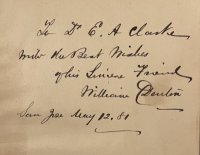 To Dr E. A Clarke
With the Best Wishes
of his Sincere Friend
William Denton
San Jose May 12. 81